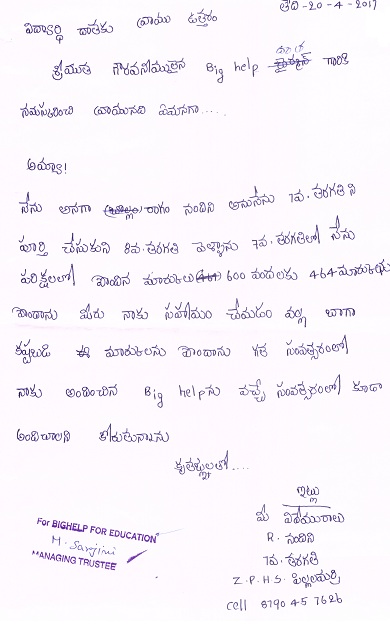 తేది-20-4-2017
విద్యార్థి దాతకు వ్రాయు ఉత్తరం
శ్రీయుత గౌరవనీయులైన Big help దాత గారికి
నమస్కరించి వ్రాయునది ఏమనగా.....
అయ్యా!
నేను అనగా రాగం నందిని అనునేను 7వ. తరగతి ని
పూర్తి చేసుకుని 8వ. తరగతి వెళ్ళాను 7వ. తరగతిలో నేను
పరీక్షలలో పొందిన మారుకులు 600 వందలకు 464 మారుకులు
పొందాను మీరు నాకు సహాయం చేయడం వల్ల బాగా
కష్టబడి ఈ మారుకులను పొందాను గత సంవత్సరంలో
నాకు అందించిన Big helpను వచ్చే సంవత్సరంలో కూడా
అందించాలని కోరుతున్నాను
కృతజ్ఞతలతో....
ఇట్లు
మీ విధేయురాలు
R. నందిని
7వ. తరగతి
Z.P.H.S. పిల్లలమర్రి
cell 8790457626
For BIGHELP FOR EDUCATION
M. Sarojini
MANAGING TRUSTEE